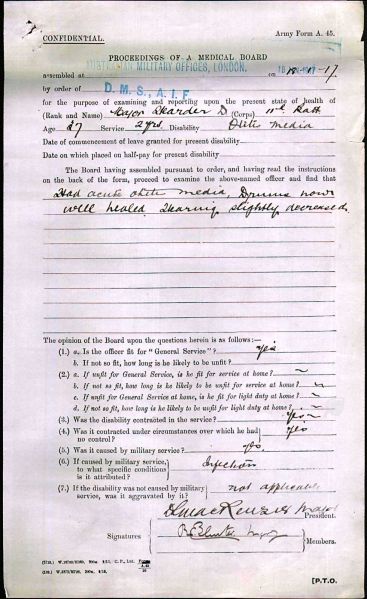 CONFIDENTIAL.
Army Form A. 45.
PROCEEDINGS OF A MEDICAL BOARD
assembled at AUSTRALIAN MILITARY OFFICES, LONDON. on 18-1-17
by order of D.M.S., A.I.F.
for the purpose of examining and reporting upon the present state of health of
(Rank and Name) Major D (Corps) Batt
Age 27 Service 2 yrs. Disability Otitis Media
Date of commencement of leave granted for present disability
Date on which placed on half-pay for present disability
The Board having assembled pursuant to order, and having read the instructions
on the back of the form, proceed to examine the above-named officer and find that
Had acute otitis media, Drums now
well healed Hearing slightly decreased.
The opinion of the Board upon the questions herein is as follows:—
(1.) a. Is the officer fit for "General Service"? yes
b. If not so fit, how long is he likely to be unfit?
(2.) a. If unfit for General Service, is he fit for service at home? ~
b. If not so fit, how long is he likely to be unfit for service at home? ~
c. If unfit for General Service at home, is he fit for light duty at home? ~
d. If not so fit, how long is he likely to be unfit for light duty at home? ~
(3.) Was the disability contracted in the service? yes
(4.) Was it contracted under circumstances over which he had
no control? yes
(5.) Was it caused by military service? yes
(6.) If caused by military service,
to what specific conditions
is it attributed? Infection
(7.) If the disability was not caused by military
service, was it aggravated by it? not applicable
Major
President.
Signatures
Major
Members.
[P.T.O.